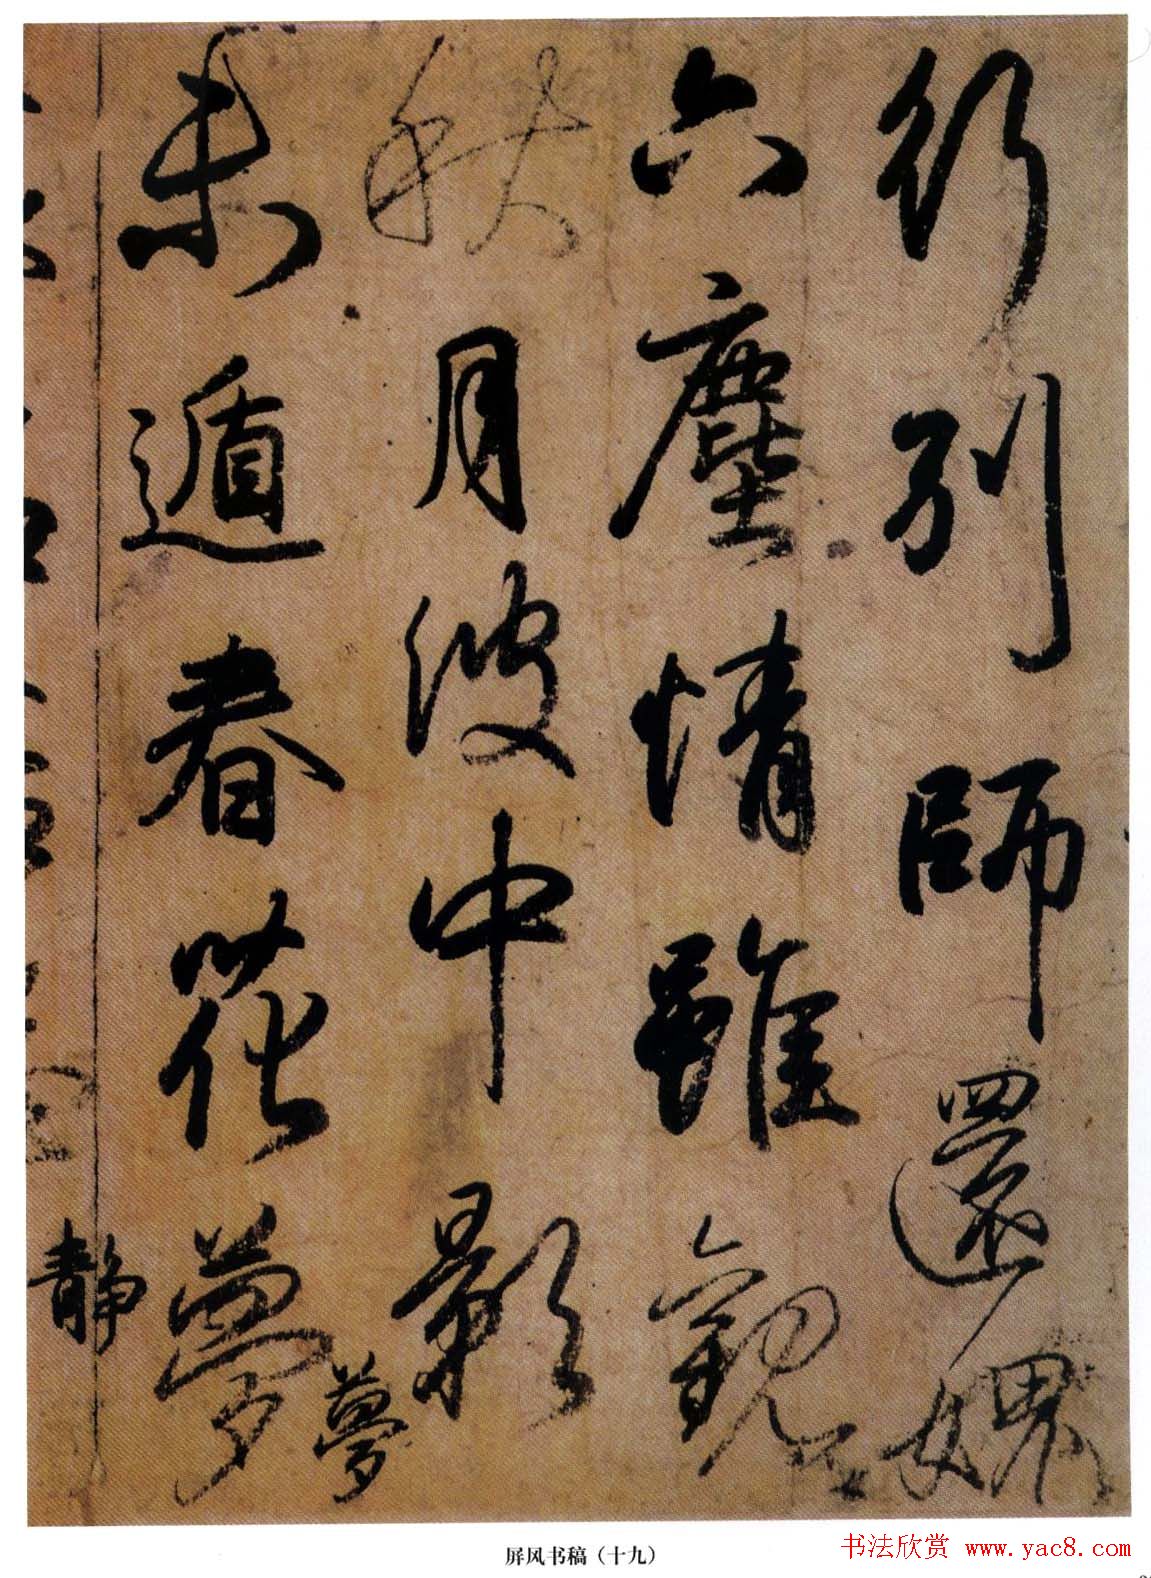 行別師還媿
六塵情雖觀
秋月波中影
夢
未遁春花夢
静
屏风书稿（十九）
书法欣赏 www.yac8.com